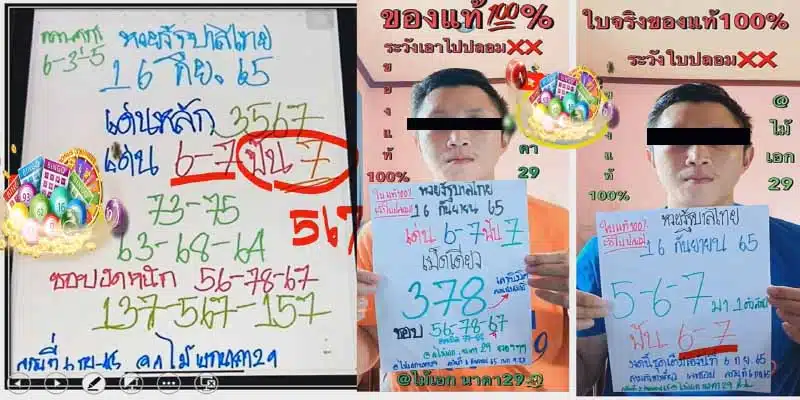 6-3-5
หวยรัฐบาลไทย
16 กย. 65
เด่นหลัก 3567
เด่น 6-7 ฟัน 7
567
73-75
63-68-64
ชอบอัดหนัก 56-78-67
137-567-157
ของแท้💯%
ระวังเอาไปปลอม❌❌
ของแท้
100%
นาคา
29
ใบแท้100%
หวยรัฐบาลไทย
16 กันยายน 65
เด่น 6-7 ฟัน 7
เม็ดเดียว
378
ชอบ 56-78-67
@ไม้เอก นาคา29
ใบจริงของแท้100%
ระวังใบปลอม❌❌
ของแท้
100%
@
ไม้
เอก
29
ใบแท้100%
หวยรัฐบาลไทย
16 กันยายน 65
5-6-7 มา 1 ตัว
ฟัน 6-7